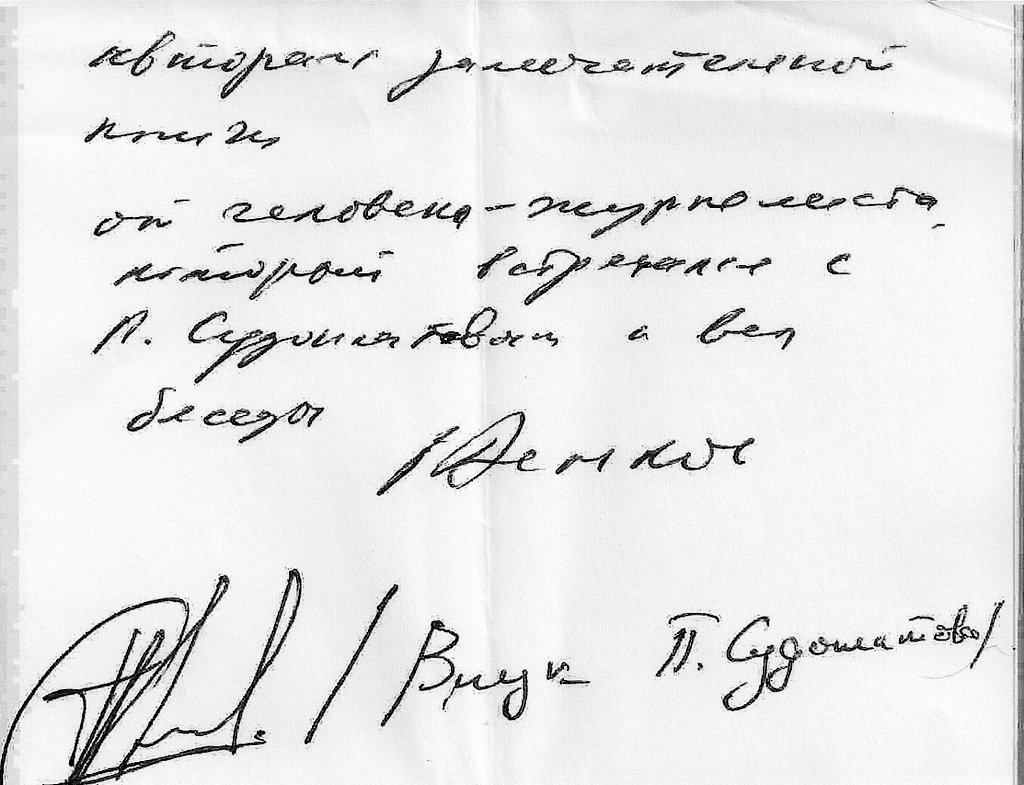 авторам замечательной
книги
от человека-журналиста,
который встречался с
П. Судоплатовым и вел
беседы
/ Внук П. Судоплатова /